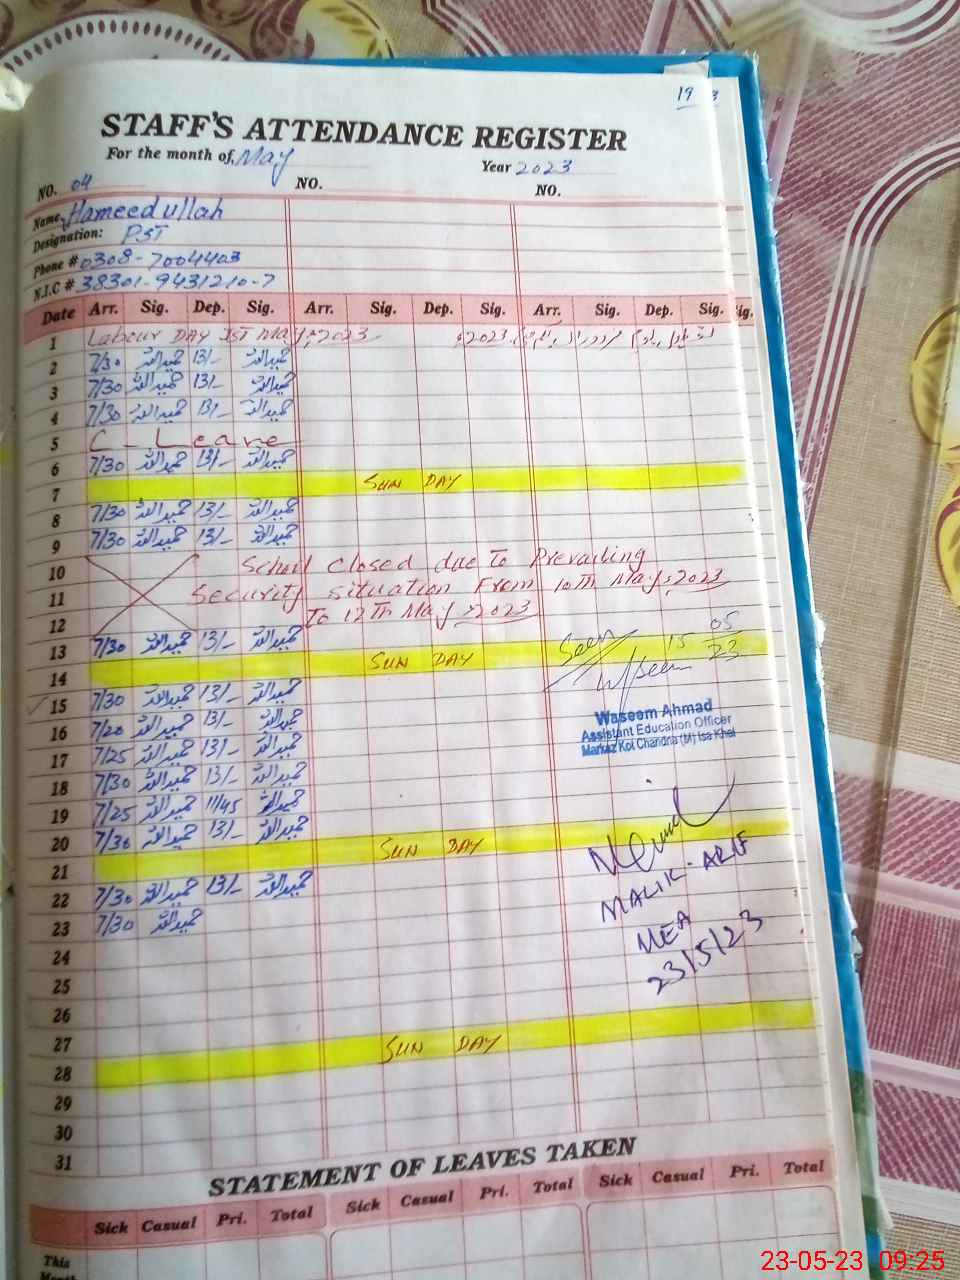 19 3
STAFF'S ATTENDANCE REGISTER
For the month of, May Year 2023
NO. 04 NO. NO.
Name, Hameedullah
Designation: PST
Phone # 0308-7004403
N.I.C # 38301-9431210-7
Date Arr. Sig. Dep. Sig. Arr. Sig. Dep. Sig. Arr. Sig. Dep. Sig. Sig.
1 Labour DAY 1st May, 2023 2023
2 7/30 حمیداللہ 13/- حمیداللہ
3 7/30 حمیداللہ 13/- حمیداللہ
4 7/30 حمیداللہ 13/- حمیداللہ
5 C-Leave
6 7/30 حمیداللہ 13/- حمیداللہ
7 SUN DAY
8 7/30 حمیداللہ 13/- حمیداللہ
9 7/30 حمیداللہ 13/- حمیداللہ
10 School closed due to Prevailing
11 Security situation From 10th May, 2023
12 To 12th May, 2023
13 7/30 حمیداللہ 13/- حمیداللہ
14 SUN DAY
Seen 15 05 23
15 7/30 حمیداللہ 13/- حمیداللہ
16 7/20 حمیداللہ 13/- حمیداللہ
Waseem Ahmad
Assistant Education Officer
Markaz Kot Chandna (M) Isa Khel
17 7/25 حمیداللہ 13/- حمیداللہ
18 7/30 حمیداللہ 13/- حمیداللہ
19 7/25 حمیداللہ 11/45 حمیداللہ
20 7/30 حمیداللہ 13/- حمیداللہ
21 SUN DAY
22 7/30 حمیداللہ 13/- حمیداللہ
23 7/30 حمیداللہ
MALIK-ARIF
MEA
23/5/23
24
25
26
27
28 SUN DAY
29
30
31
STATEMENT OF LEAVES TAKEN
Sick Casual Pri. Total Sick Casual Pri. Total Sick Casual Pri. Total
This
Month
23-05-23 09:25